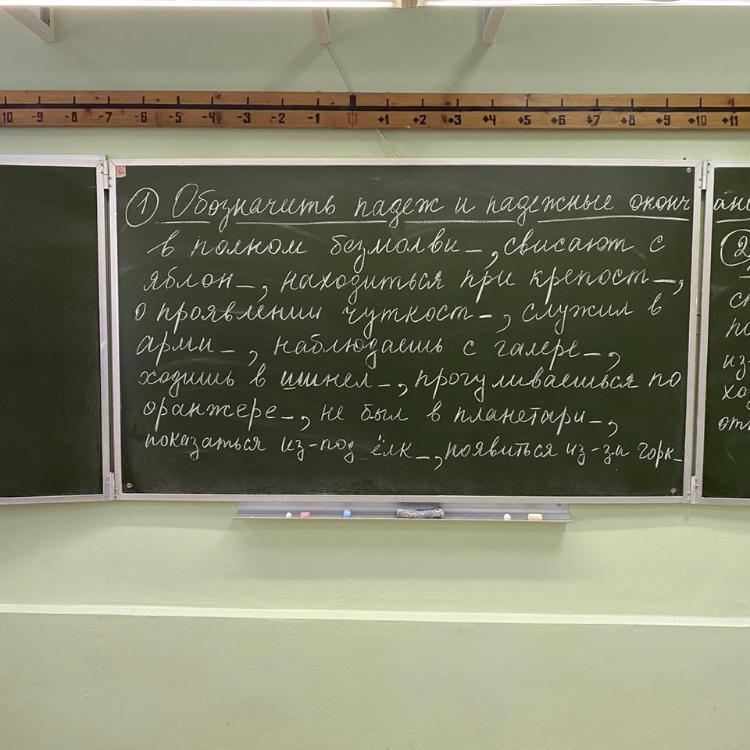 10 -9 -8 -7 -6 -5 -4 -3 -2 -1 0 +1 +2 +3 +4 +5 +6 +7 +8 +9 +10 +11
1 Обозначить падеж и падежные оконч
в полном безмолви_, свисают с
яблон_, находиться при крепост_,
о проявлении чуткост_, служил в
арми_, наблюдаешь с галере_,
ходишь в шинел_, прогуливаешься по
оранжере_, не был в планетари_,
показаться из-под ёлк_, появиться из-за горк_
2
из-
хо
отп